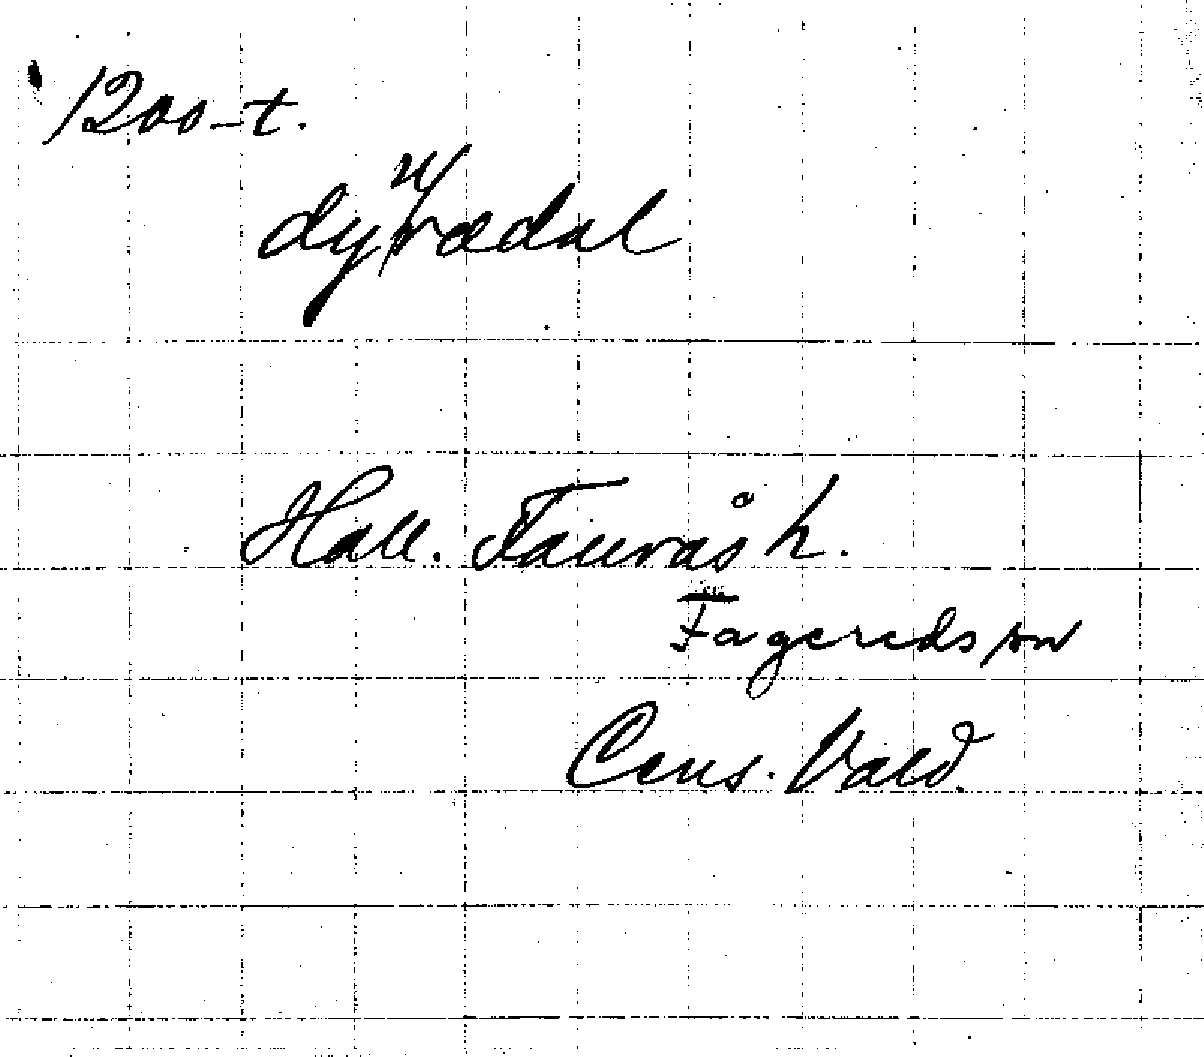 1200-t.
dyurædal
Hall. Faurås h.
Fagereds sn
Cens. Vald.